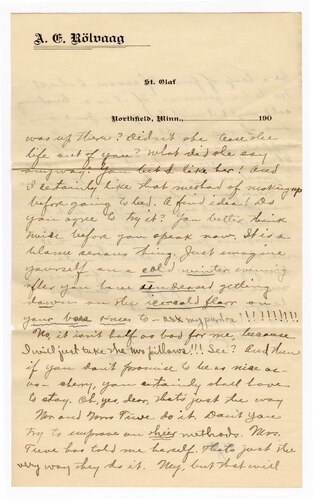 A. E. Rölvaag
St. Olaf
Northfield, Minn., 190
was up there? Didn't she tease the
life out of you? What did she say
anyway? You bet I like her! And
I certainly like that method of making up
before going to bed. A fine idea! Do
you agree to try it? You better think
twice before you speak now. It is a
blame serious thing. Just imagine
yourself on a cold winter evening
after you have undressed getting
down on the icecold floor on
your bare knees to — ask my pardon!!!!!!!!!!
No, it isn't half as bad for me, because
I will just take the two pillows!!! See? And then
if you don't promise to be as nice as
as – clary, you certainly shall have
to stay. Oh, yes, dear, that's just the way
Mr and Mrs Tuve do it. Don't you
try to improve on their methods. Mrs.
Tuve has told me herself, that's just the
very way they do it. My, but that will